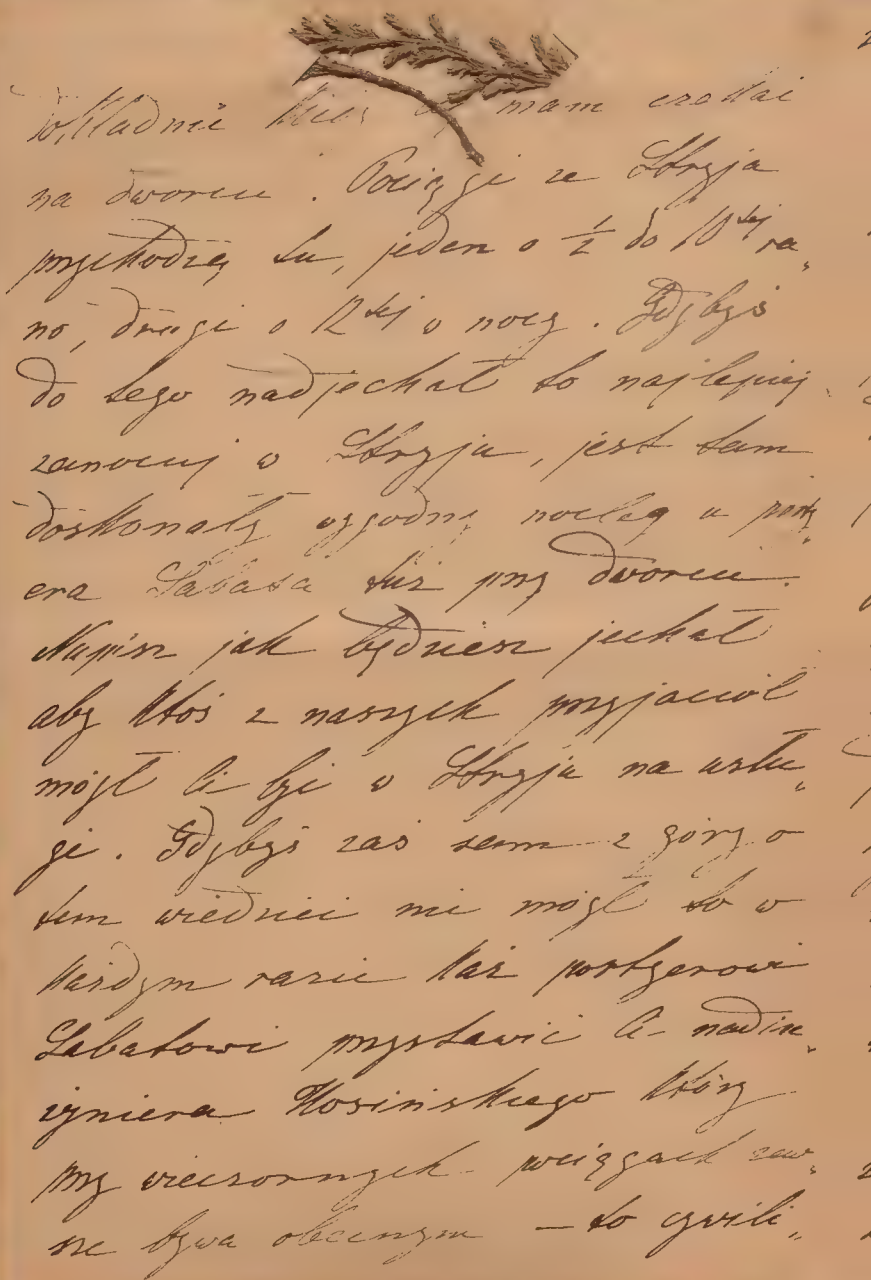 dokładnie kiedy mam czekać
na dworcu. Pociągi ze Stryja
przychodzą tu, jeden o ½ do 10tej ra„
no, drugi o 12tej w nocy. Gdybyś
do tego nadjechał to najlepiej
zanocuj w Stryju, jest tam
doskonały wygodny nocleg u porty„
era Labata tuż przy dworcu.
Napisz jak będziesz jechał
aby ktoś z naszych przyjaciół
mógł Ci być w Stryju na usłu„
gi. Gdybyś zaś sam z góry o
tem wiedzieć nie mógł to w
każdym razie każ portyerowi
Labatowi przystawić Ci nadin„
żyniera Kosińskiego który
przy wieczornych pociągach zaw„
sze bywa obecnym — to cywili„